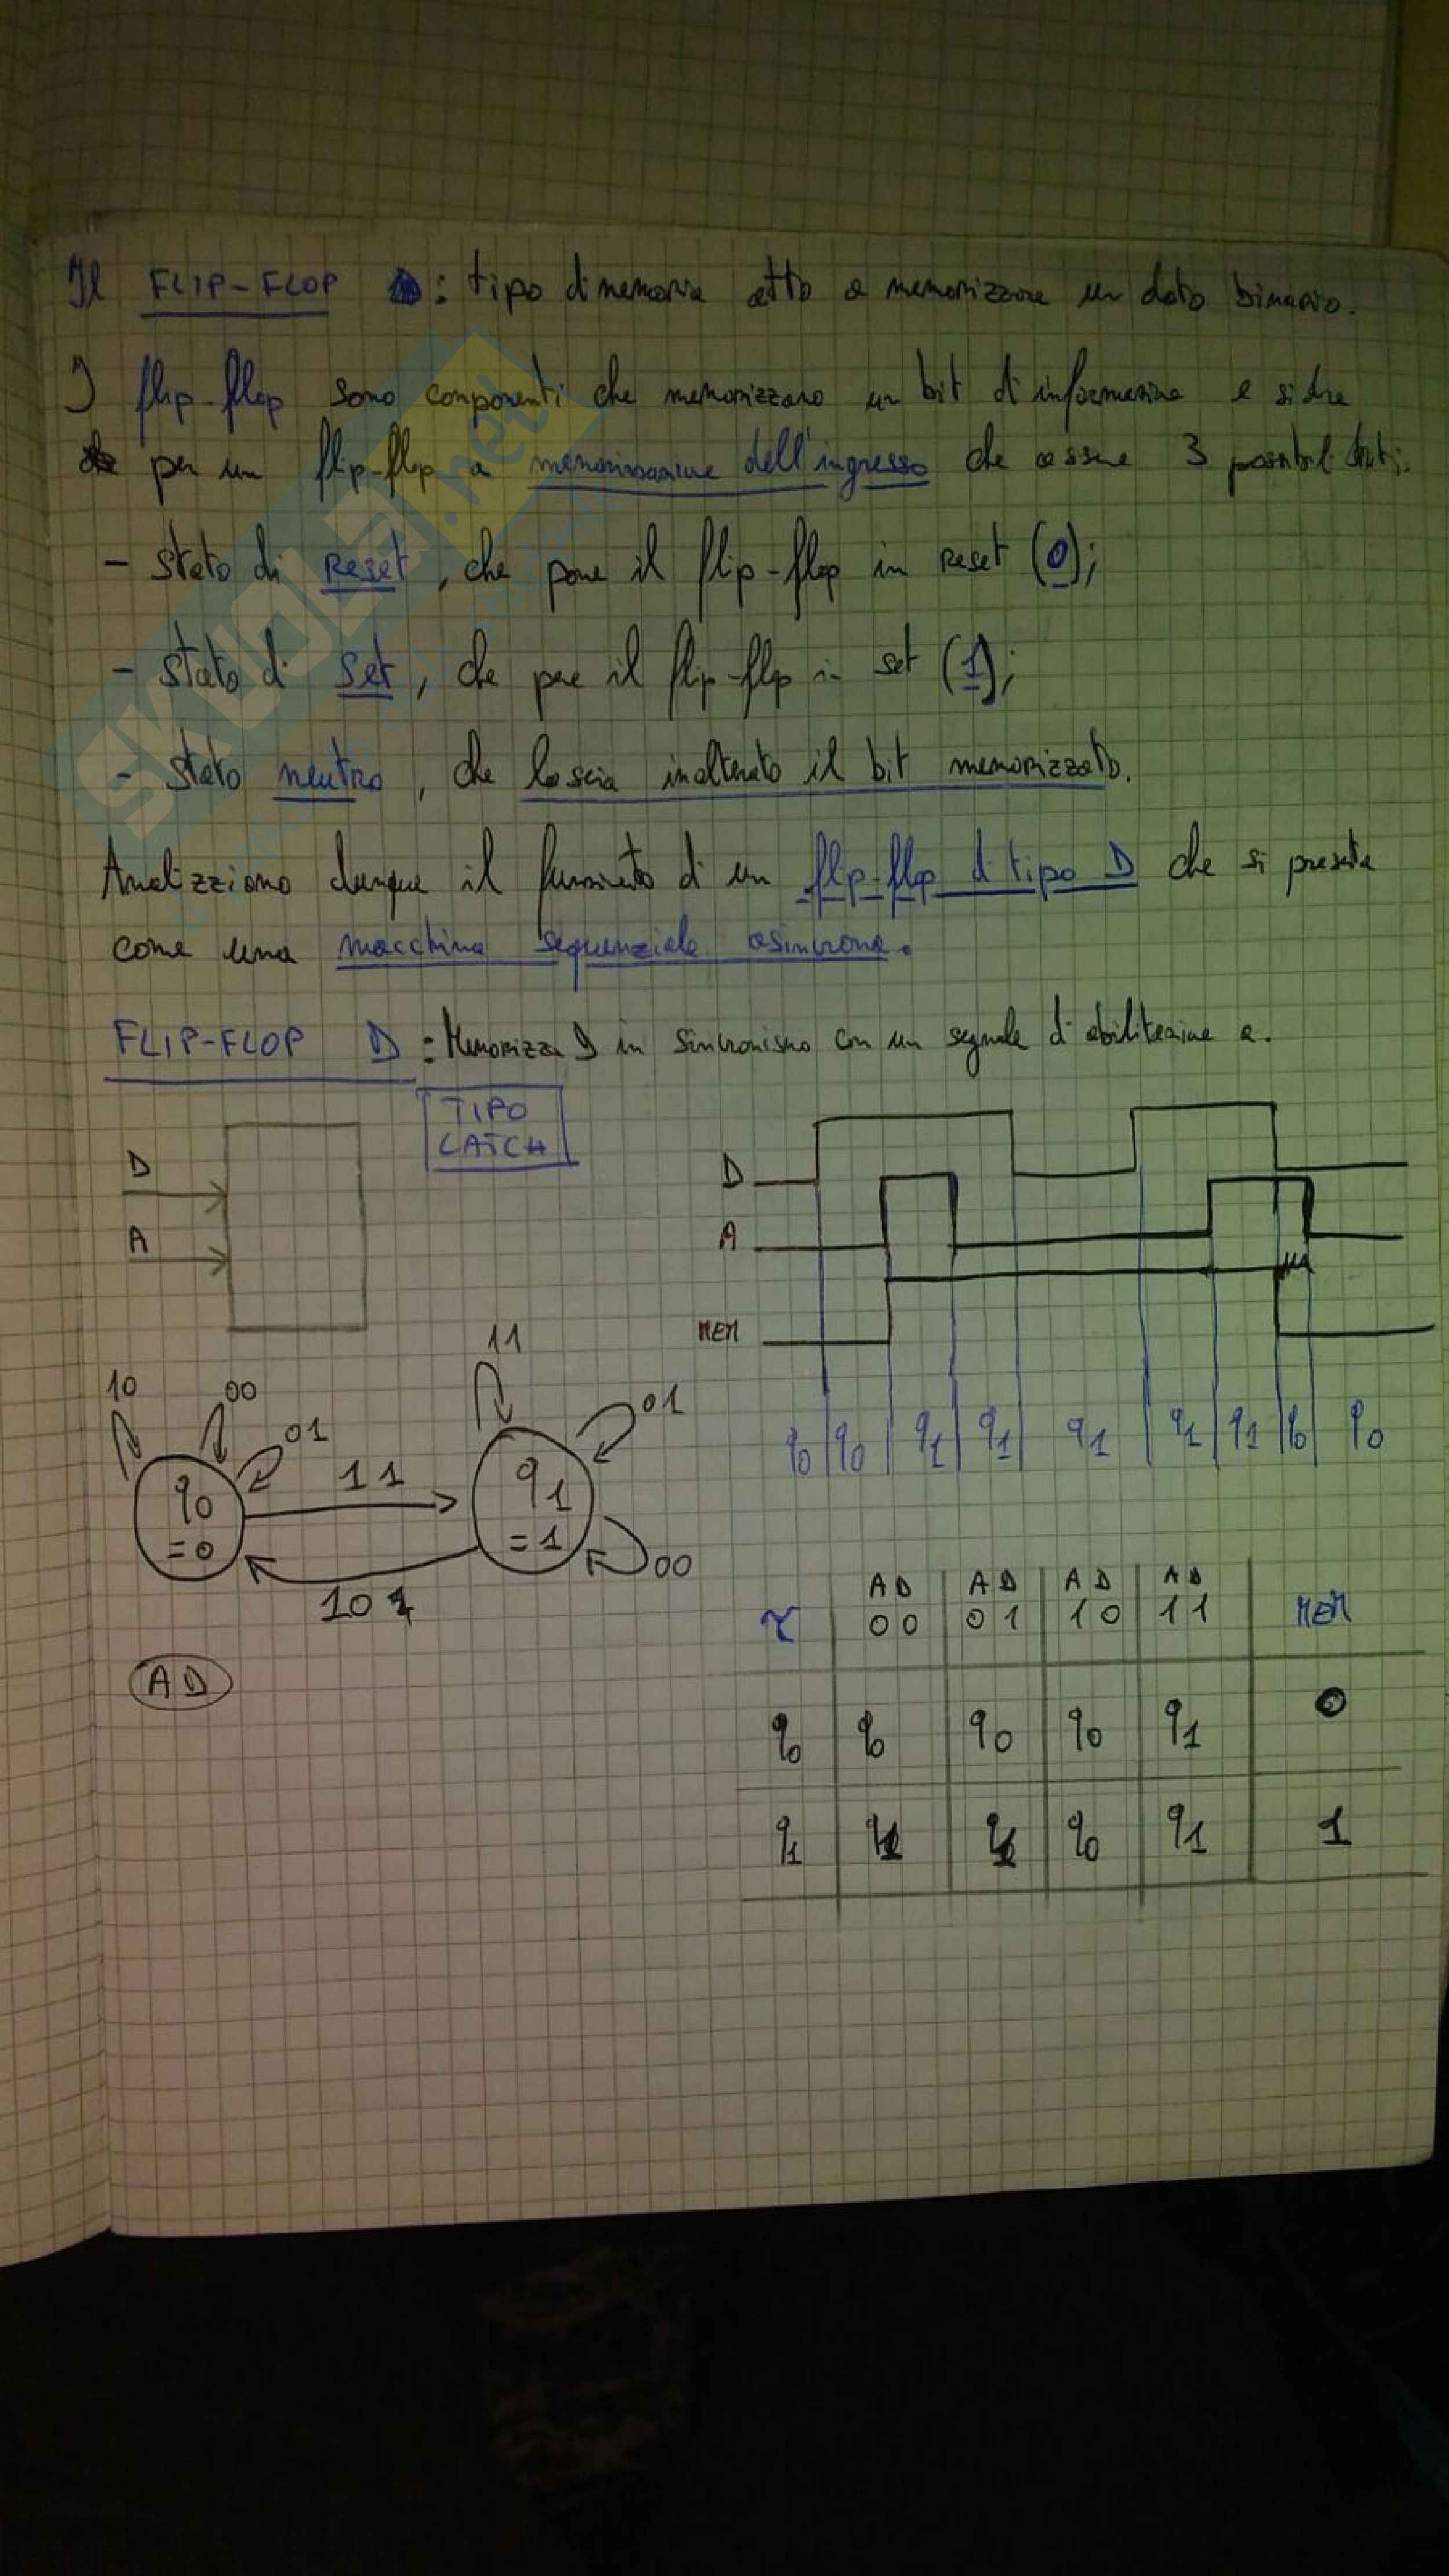 Il FLIP-FLOP : tipo di memoria atto a memorizzare un dato binario.
I flip-flop sono componenti che memorizzano un bit di informazione e si dice
per un flip-flop a memorizzazione dell'ingresso che assume 3 possibili stati.
- stato di Reset, che pone il flip-flop in reset (0);
- stato di Set, che pone il flip-flop in set (1);
- stato neutro, che lascia inalterato il bit memorizzato.
Analizziamo dunque il funzionamento di un flip-flop di tipo D che si presenta
come una macchina sequenziale asincrona.
FLIP-FLOP D : Memorizza D in sincronismo con un segnale di abilitazione a.
TIPO
LATCH
D
A
D
A
MEM
q0 q0 q1 q1 q1 q1 q1 q0 q0
10 00 01 11 11 01
q0
=0
q1
=1
00
10
AD
τ AD AD AD AD MEM
00 01 10 11
q0 q0 q0 q0 q1 0
q1 q1 q1 q0 q1 1
SKUOLA.net